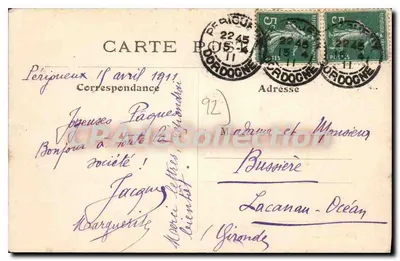 CARTE POSTALE
PERIGUEUX
22 45
15 - 4
11
DORDOGNE
5
5
Périgueux 15 avril 1911
Correspondance
Adresse
92
Joyeuses Pâques
Bonjour à toute la
société !
Jacques
Marguerite
Merci lettres
bientôt
Madame et Monsieur
Bussière
Lacanau-Océan
(Gironde)